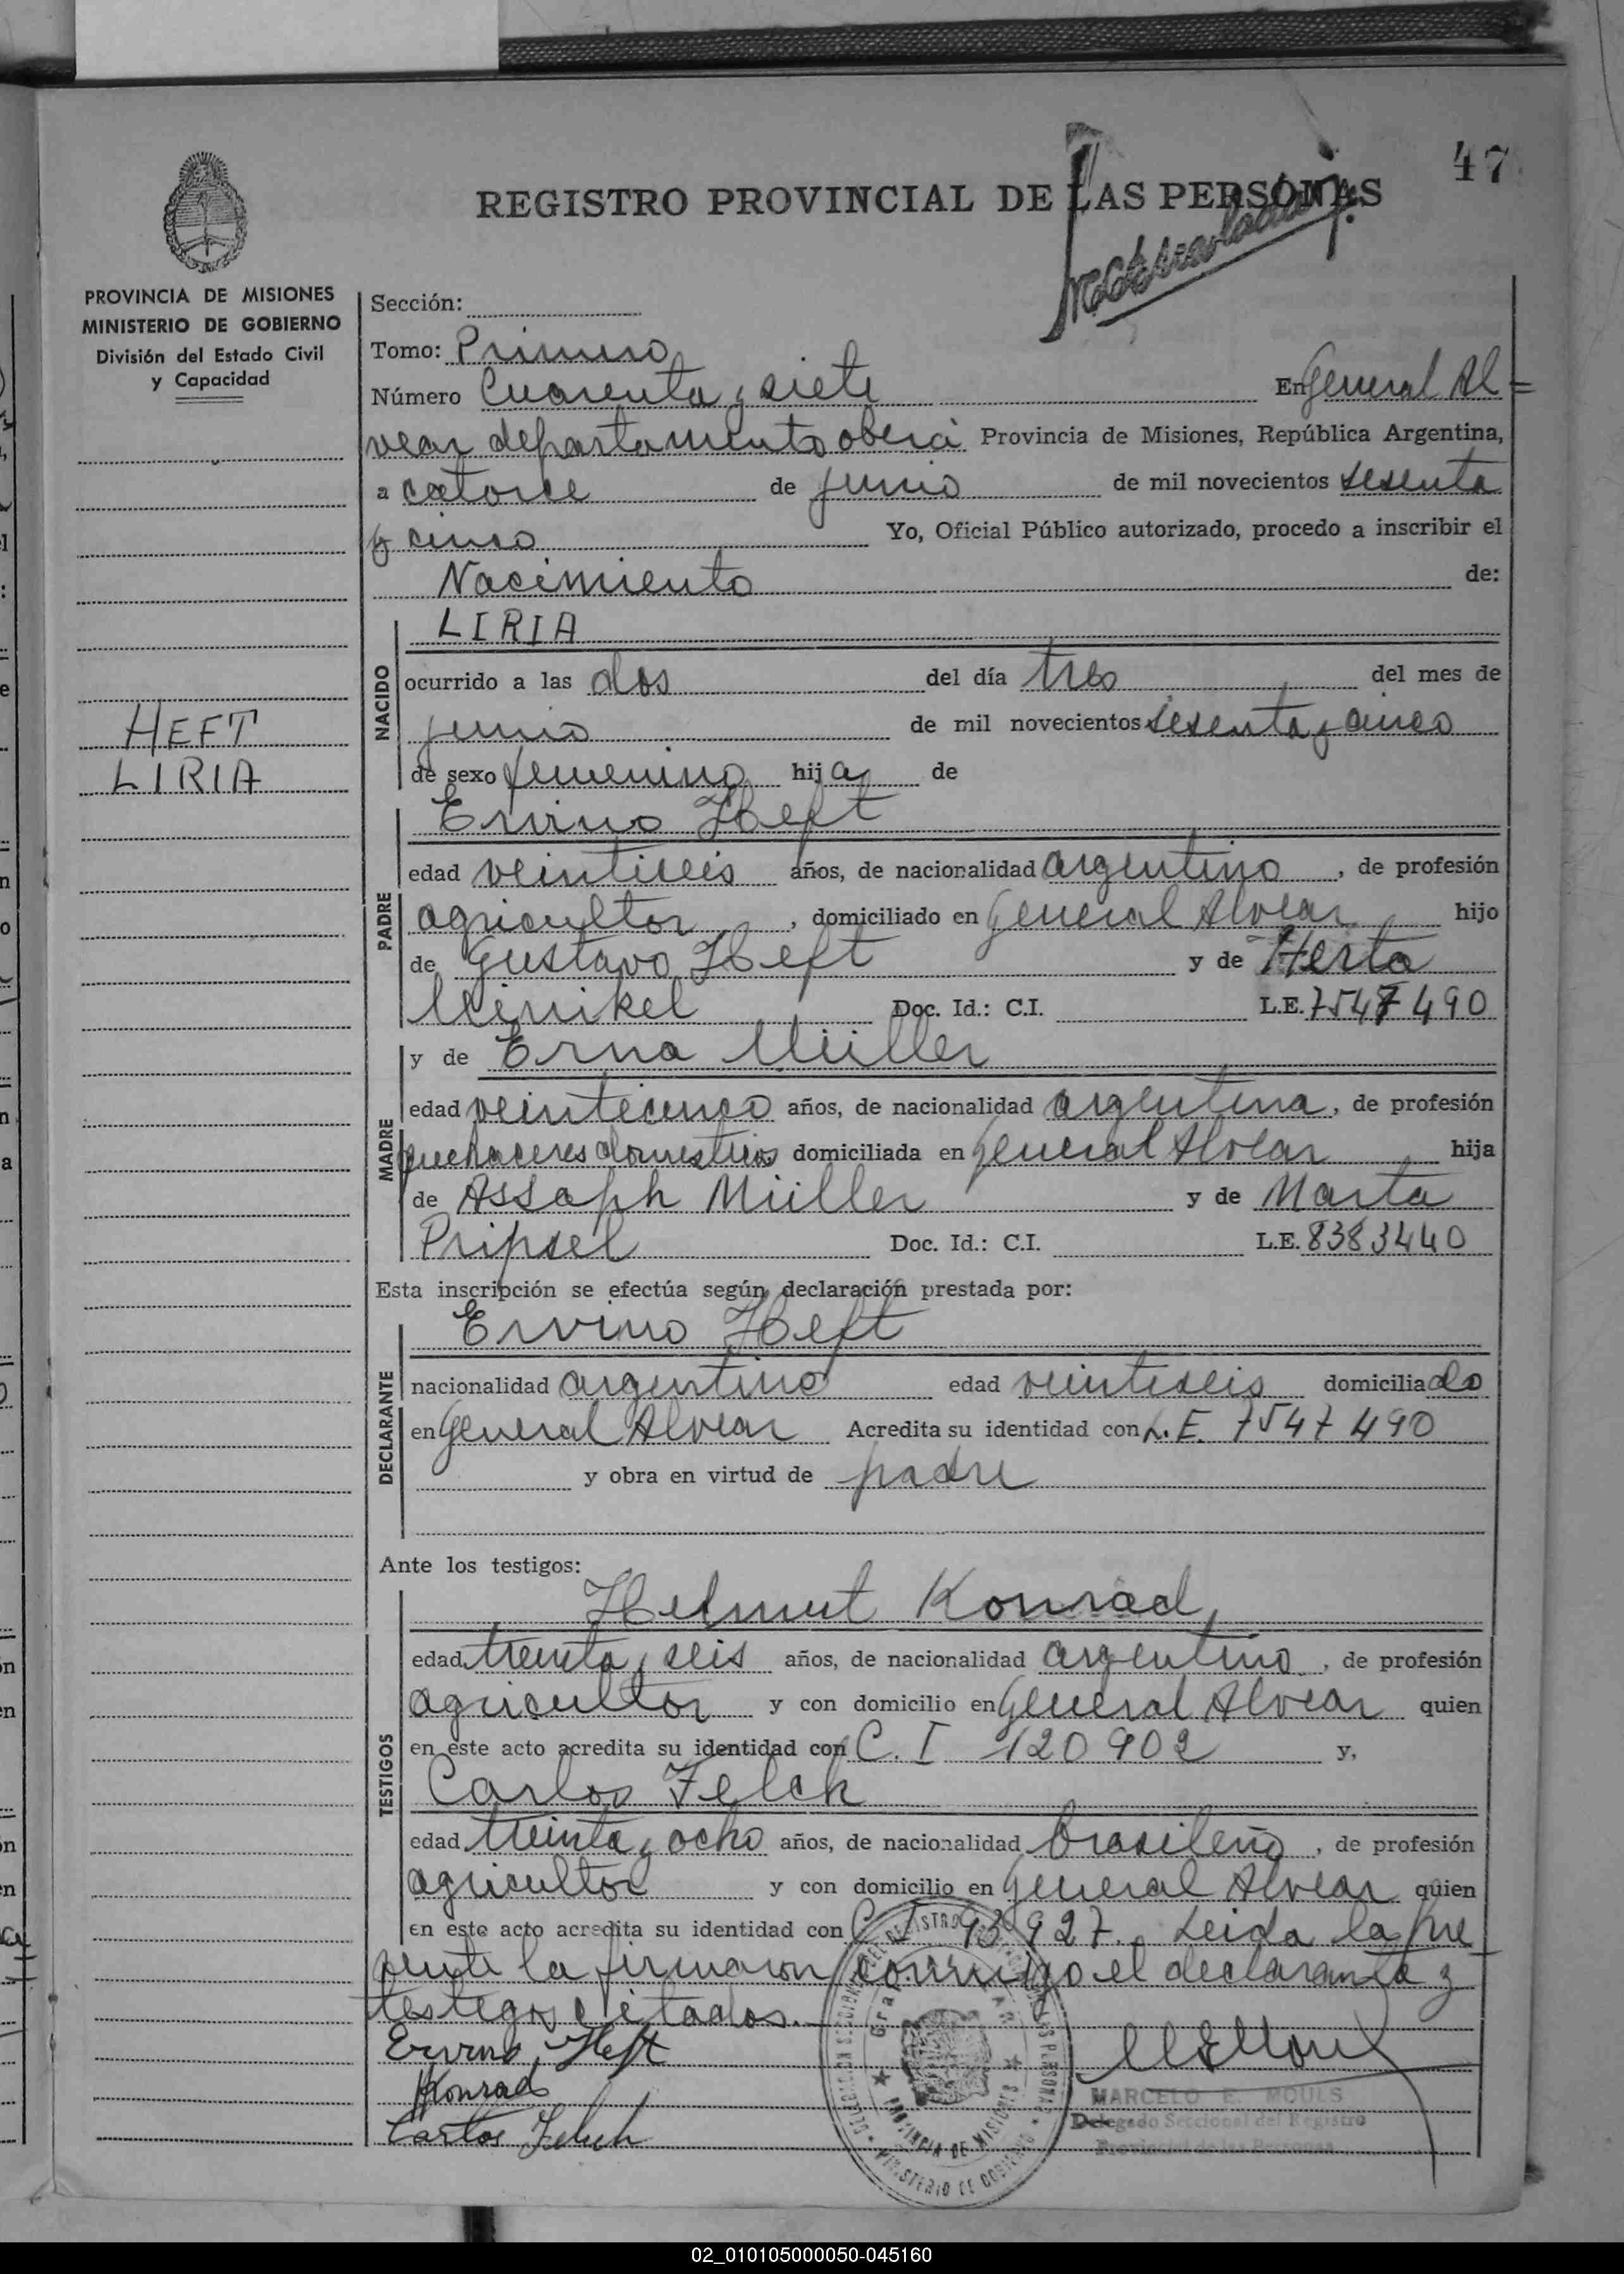 47
REGISTRO PROVINCIAL DE LAS PERSONAS
PROVINCIA DE MISIONES
MINISTERIO DE GOBIERNO
División del Estado Civil
y Capacidad
HEFT
LIRIA
Sección:
Tomo: Primero
Número Cuarenta y siete En General Al=
vear departamento oberá Provincia de Misiones, República Argentina,
a catorce de junio de mil novecientos sesenta
y cinco Yo, Oficial Público autorizado, procedo a inscribir el
Nacimiento de:
LIRIA
NACIDO
ocurrido a las dos del día tres del mes de
junio de mil novecientos sesenta y cinco
de sexo femenino hija de
Ervino Heft
PADRE
edad veintiseis años, de nacionalidad argentino, de profesión
agricultor, domiciliado en General Alvear hijo
de Gustavo Heft y de Herta
Doc. Id.: C.I. L.E. 7547490
y de Erna Müller
MADRE
edad veinticinco años, de nacionalidad argentina, de profesión
quehaceres domesticos domiciliada en General Alvear hija
de Assaph Müller y de Marta
Pripsel Doc. Id.: C.I. L.E. 8383440
Esta inscripción se efectúa según declaración prestada por:
Ervino Heft
DECLARANTE
nacionalidad argentino edad veintiseis domiciliado
en General Alvear Acredita su identidad con L.E. 7547490
y obra en virtud de padre
Ante los testigos:
Helmut Konrad
TESTIGOS
edad treinta y seis años, de nacionalidad argentino, de profesión
agricultor y con domicilio en General Alvear quien
en este acto acredita su identidad con C. I 120902 y,
Carlos Felch
edad treinta y ocho años, de nacionalidad brasileño, de profesión
agricultor y con domicilio en General Alvear quien
en este acto acredita su identidad con C I 93927. Leida la pre
sente la firmaron conmigo el declarante y
testigos citados.
Ervino Heft
Konrad
Carlos Felch
MARCELO E. MOULS
Delegado Seccional del Registro
Provincial de las Personas
PROVINCIA DE MISIONES
MINISTERIO DE GOBIERNO
02_010105000050-045160